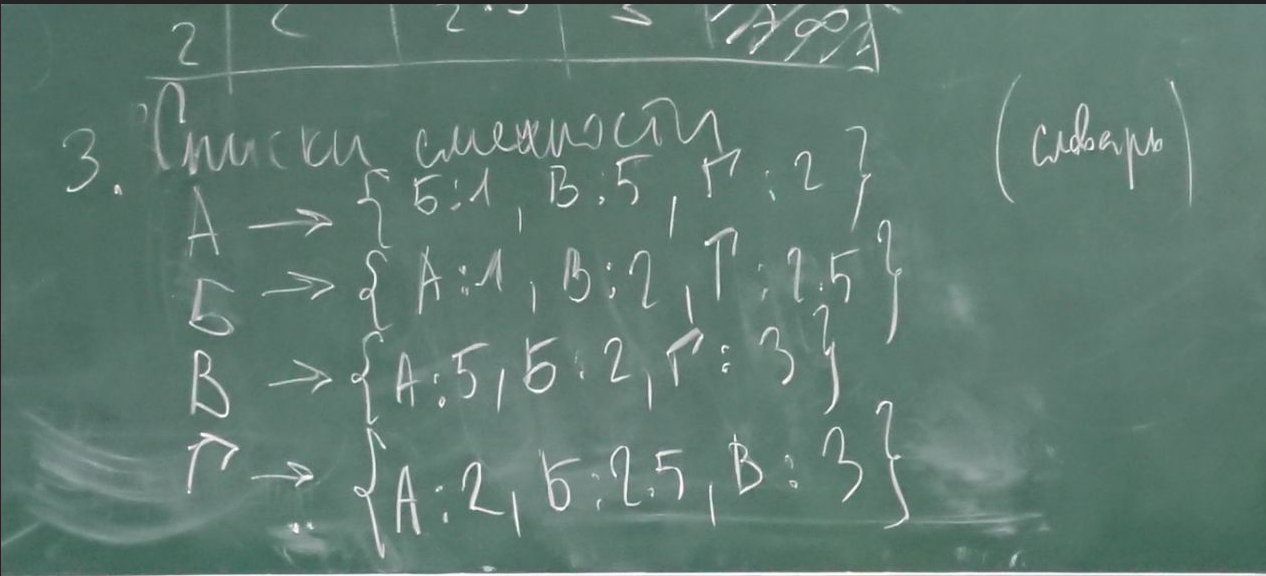 2 2.5
3. Списки смежности (словарь)
А → { Б:1, В:5, Г:2 }
Б → { А:1, В:2, Г:2.5 }
В → { А:5, Б:2, Г:3 }
Г → { А:2, Б:2.5, В:3 }